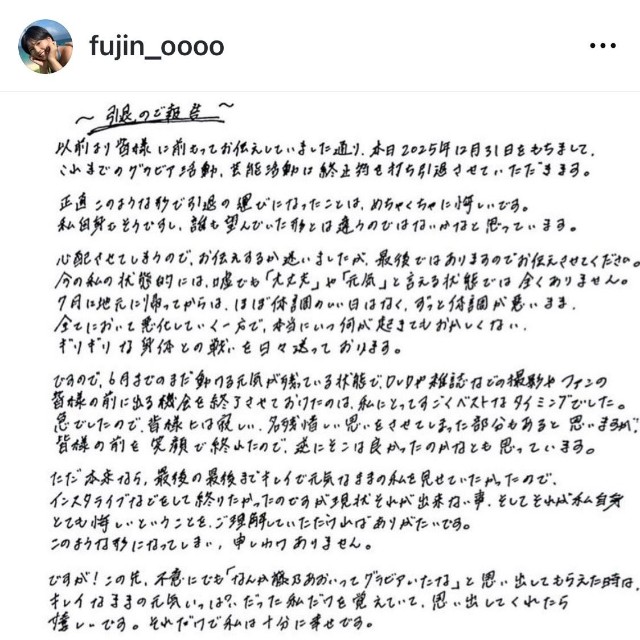 fujin_oooo
〜引退のご報告〜
以前より皆様に前もってお伝えしていました通り、本日2025年12月31日をもちまして、
これまでのグラビア活動、芸能活動に終止符を打ち引退させていただきます。
正直このような形で引退の運びになったことは、めちゃくちゃに悔しいです。
私自身もそうですし、誰も望んでいた形とは違うのではないかなと思っています。
心配させてしまうので、お伝えするか迷いましたが、最後ではありますのでお伝えさせてください。
今の私の状態的には、嘘でも「大丈夫」や「元気」と言える状態では全くありません。
7月に地元に帰ってからは、ほぼ体調のいい日はなく、ずっと体調が悪いまま、
全てにおいて悪化していく一方で、本当にいつ何が起きてもおかしくない、
ギリギリな身体との戦いを日々送っております。
ですので、6月までのまだ動ける元気が残っている状態で、DVDや雑誌などの撮影やファンの
皆様の前に出る機会を終了させておけたのは、私にとってすごくベストなタイミングでした。
急でしたので、皆様には寂しい、名残惜しい思いをさせてしまった部分もあると思いますが、
皆様の前を笑顔で終れたので、逆にそこは良かったのかなとも思っています。
ただ本来なら、最後の最後までキレイで元気なままの私を見せていたかったので、
インスタライブなどをして終りたかったのですが現状それが出来ない事、そしてそれが私自身
とても悔しいということを、ご理解していただければありがたいです。
このような形になってしまい、申しわけありません。
ですが！この先、不意にでも「なんか磯乃あおいってグラビアいたな」と思い出してもらえた時は、
キレイなままの元気いっぱい？だった私だけを覚えていて、思い出してくれたら
嬉しいです。それだけで私は十分に幸せです。